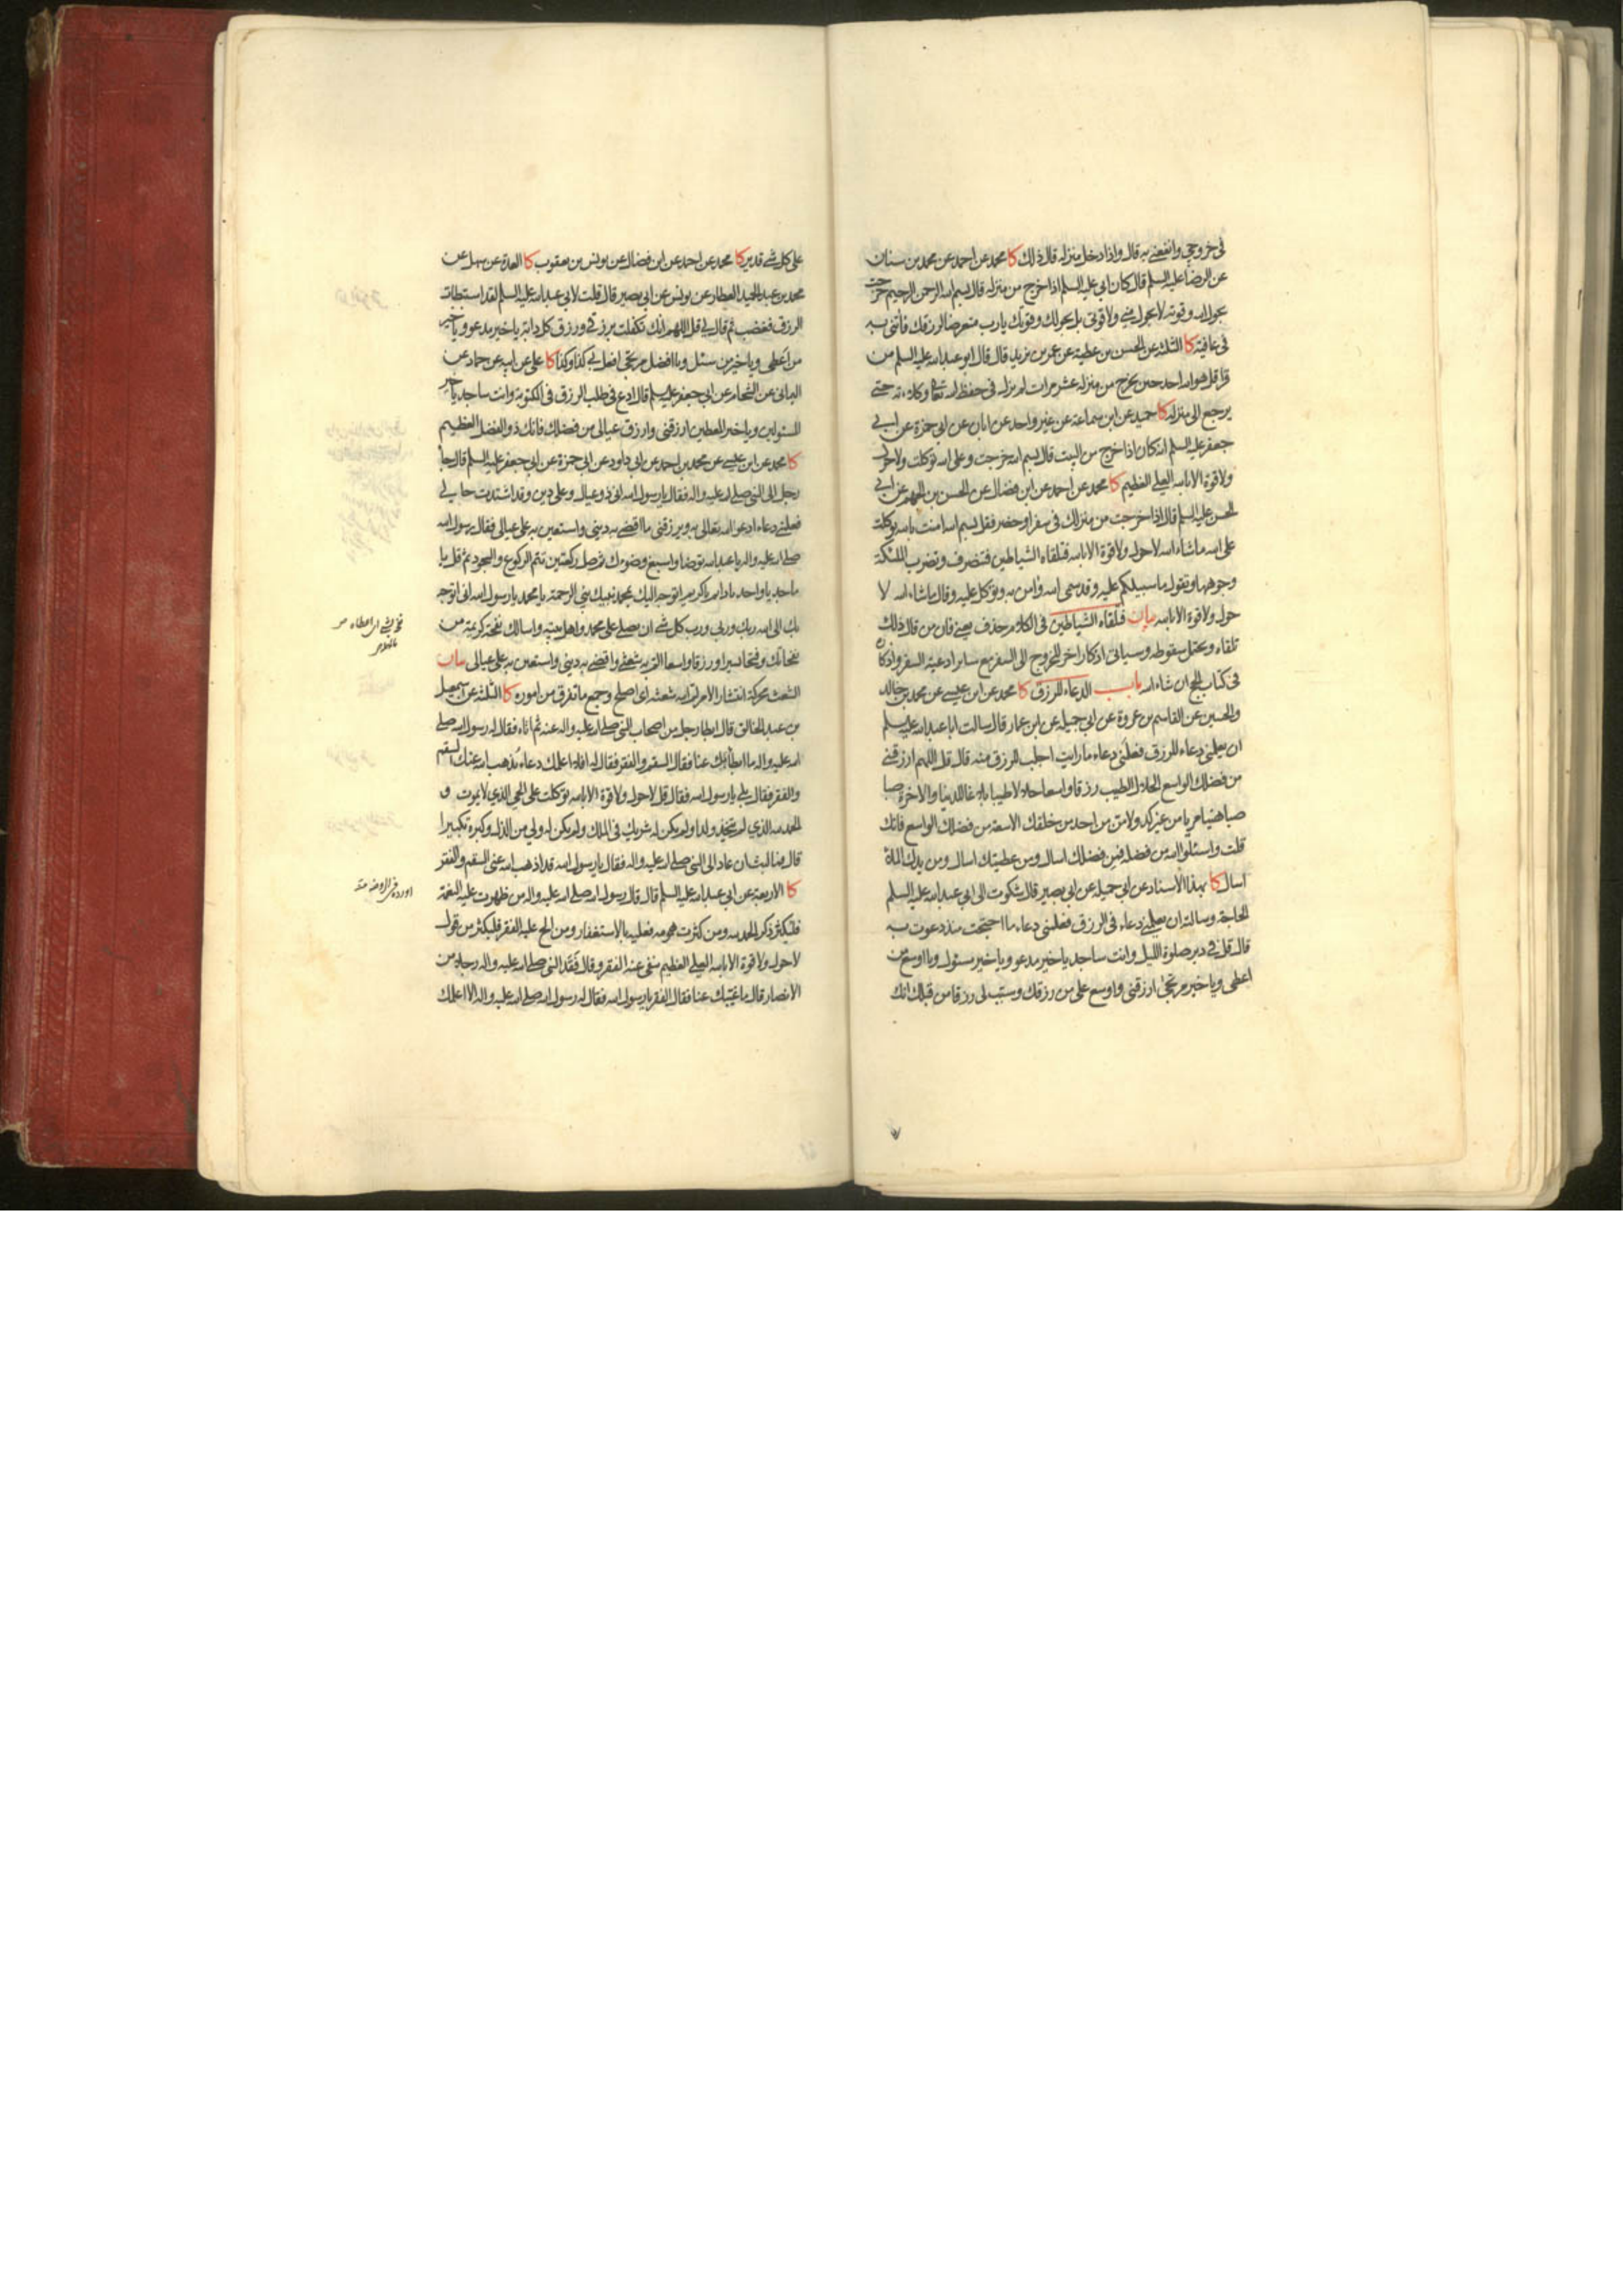 في خروجي وانفعني به قال واذا دخل منزله قال ذلك كا محمد عن احمد عن محمد بن سنان
عن الرضا عليه السلم قال كان ابي عليه السلم اذا خرج من منزله قال بسم الله الرحمن الرحيم خرجت
بحول الله وقوته لا بحول مني ولا قوتي بل بحولك وقوتك يارب متعرضا لرزقك فأتني به
في عافية كا الثلثة عن الحسن بن عطية عن عمر بن يزيد قال قال ابو عبدالله عليه السلم من
قرا قل هو الله احد حين يخرج من منزله عشر مرات لم يزل في حفظ الله تعالى وكلاءته حتى
يرجع الى منزله كا حميد عن ابن سماعة عن غير واحد عن ابان عن ابي حمزة عن ابي
جعفر عليه السلم انه كان اذا خرج من البيت قال بسم الله خرجت وعلى الله توكلت ولا حول
ولا قوة الا بالله العلي العظيم كا محمد عن احمد عن ابن فضال عن الحسن بن الجهم عن ابي
الحسن عليه السلم قال اذا خرجت من منزلك في سفر او حضر فقل بسم الله امنت بالله توكلت
على الله ما شاء الله لا حول ولا قوة الا بالله فتلقاه الشياطين فتنصرف وتضرب الملئكة
وجوهها وتقول ما سبيلكم عليه وقد سمى الله وامن به وتوكل عليه وقال ما شاء الله لا
حول ولا قوة الا بالله بيان فتلقاه الشياطين في الكلام حذف يعني فان من قال ذلك
تلقاه ويحتمل سقوطه وسياتي اذكار اخر للخروج الى السفر مع ساير ادعية السفر واذكاره
في كتاب الحج ان شاء الله باب الدعاء للرزق كا محمد عن ابن عيسى عن محمد بن خالد
والحسين عن القاسم بن عروة عن ابي جميلة عن ابن عمار قال سالت ابا عبدالله عليه السلم
ان يعلمني دعاء للرزق فعلمني دعاء ما رايت اجلب للرزق منه قال قل اللهم ارزقني
من فضلك الواسع الحلال الطيب رزقا واسعا حلالا طيبا بلاغا للدنيا والاخرة صبا
صبا هنيئا مريا من غير كد ولا من من احد من خلقك الا سعة من فضلك الواسع فانك
قلت واسئلوا الله من فضله فمن فضلك اسال ومن عطيتك اسال ومن يدك الملأ
اسال كا بهذا الاسناد عن ابي جميلة عن ابي بصير قال شكوت الى ابي عبدالله عليه السلم
الحاجة وسالته ان يعلمني دعاء في الرزق فعلمني دعاء ما احتجت منذ دعوت به
قال قل في دبر صلوة الليل وانت ساجد يا خير مدعو ويا خير مسئول ويا اوسع من
اعطى ويا خير مرتجى ارزقني واوسع علي من رزقك وسبب لي رزقا من قبلك انك
على كل شيء قدير كا محمد عن احمد عن ابن فضال عن يونس بن يعقوب كا العدة عن سهل عن
محمد بن عبد الحميد العطار عن يونس عن ابي بصير قال قلت لابي عبدالله عليه السلم لقد استبطات
الرزق فغضب ثم قال لي قل اللهم انك تكفلت برزقي ورزق كل دابة يا خير مدعو ويا خير
من اعطى ويا خير من سئل ويا افضل مرتجى افعل بي كذا وكذا كا علي عن ابيه عن حماد عن
اليماني عن الشحام عن ابي جعفر عليه السلم قال ادع في طلب الرزق في المكتوبة وانت ساجد يا خير
المسئولين ويا خير المعطين ارزقني وارزق عيالي من فضلك فانك ذو الفضل العظيم
كا محمد عن ابن عيسى عن محمد بن احمد عن ابي داود عن ابي حمزة عن ابي جعفر عليه السلم قال جا
رجل الى النبي صلى الله عليه واله فقال يا رسول الله اني ذو عيال وعلي دين وقد اشتدت حالي
فعلمني دعاء ادعو الله تعالى به ويرزقني ما اقضي به ديني واستعين به على عيالي فقال رسول الله
صلى الله عليه واله يا عبدالله توضا واسبغ وضوءك ثم صل ركعتين تتم الركوع والسجود ثم قل يا
ماجد يا واحد يا دايم يا كريم اتوجه اليك بمحمد نبيك نبي الرحمة يا محمد يا رسول الله اني اتوجه
بك الى الله ربك وربي ورب كل شيء ان يصلي على محمد واهل بيته واسالك نفحة كريمة من
نفحاتك وفتحا يسيرا ورزقا واسعا الم به شعثي واقضي به ديني واستعين به على عيالي بيان
الشعث محركة انتشار الامر لم الله شعثه اي اصلح وجمع ما تفرق من اموره كا الثلثة عن اسمعيل
بن عبد الخالق قال ابطا رجل من اصحاب النبي صلى الله عليه واله عنه ثم اتاه فقال له رسول الله صلى
الله عليه واله ما ابطأ بك عنا فقال السقم والفقر فقال له افلا اعلمك دعاء يذهب الله عنك السقم
والفقر فقال بلى يا رسول الله فقال قل لا حول ولا قوة الا بالله توكلت على الحي الذي لا يموت و
الحمد لله الذي لم يتخذ ولدا ولم يكن له شريك في الملك ولم يكن له ولي من الذل وكبره تكبيرا
قال فما لبث ان عاد الى النبي صلى الله عليه واله فقال يا رسول الله قد اذهب الله عني السقم والفقر
كا الاربعة عن ابي عبدالله عليه السلم قال قال رسول الله صلى الله عليه واله من ظهرت عليه النعمة
فليكثر ذكر الحمد لله ومن كثرت همومه فعليه بالاستغفار ومن الح عليه الفقر فليكثر من قول
لا حول ولا قوة الا بالله العلي العظيم ينفى عنه الفقر وقال فقد النبي صلى الله عليه واله رجلا من
الانصار قال ما غيبك عنا فقال الفقر يا رسول الله فقال له رسول الله صلى الله عليه واله الا اعلمك
اورده في الروضة منه